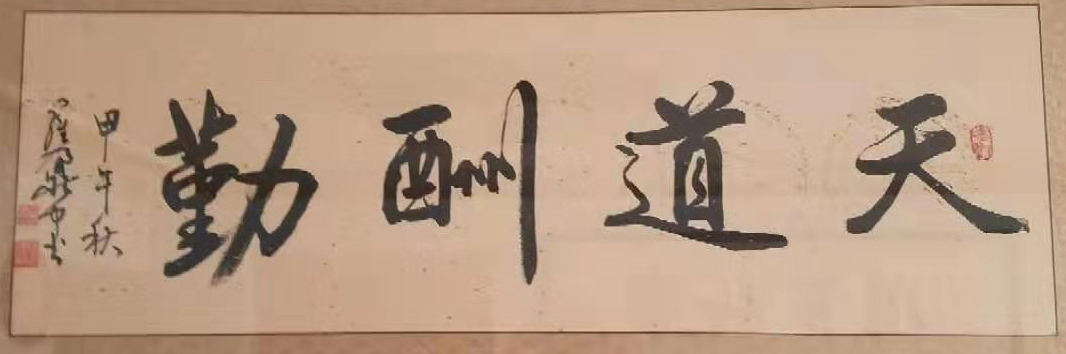 天道酬勤
甲午秋